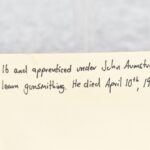 16 and apprenticed under John Armstr
learn gunsmithing. He died April 10th, 19